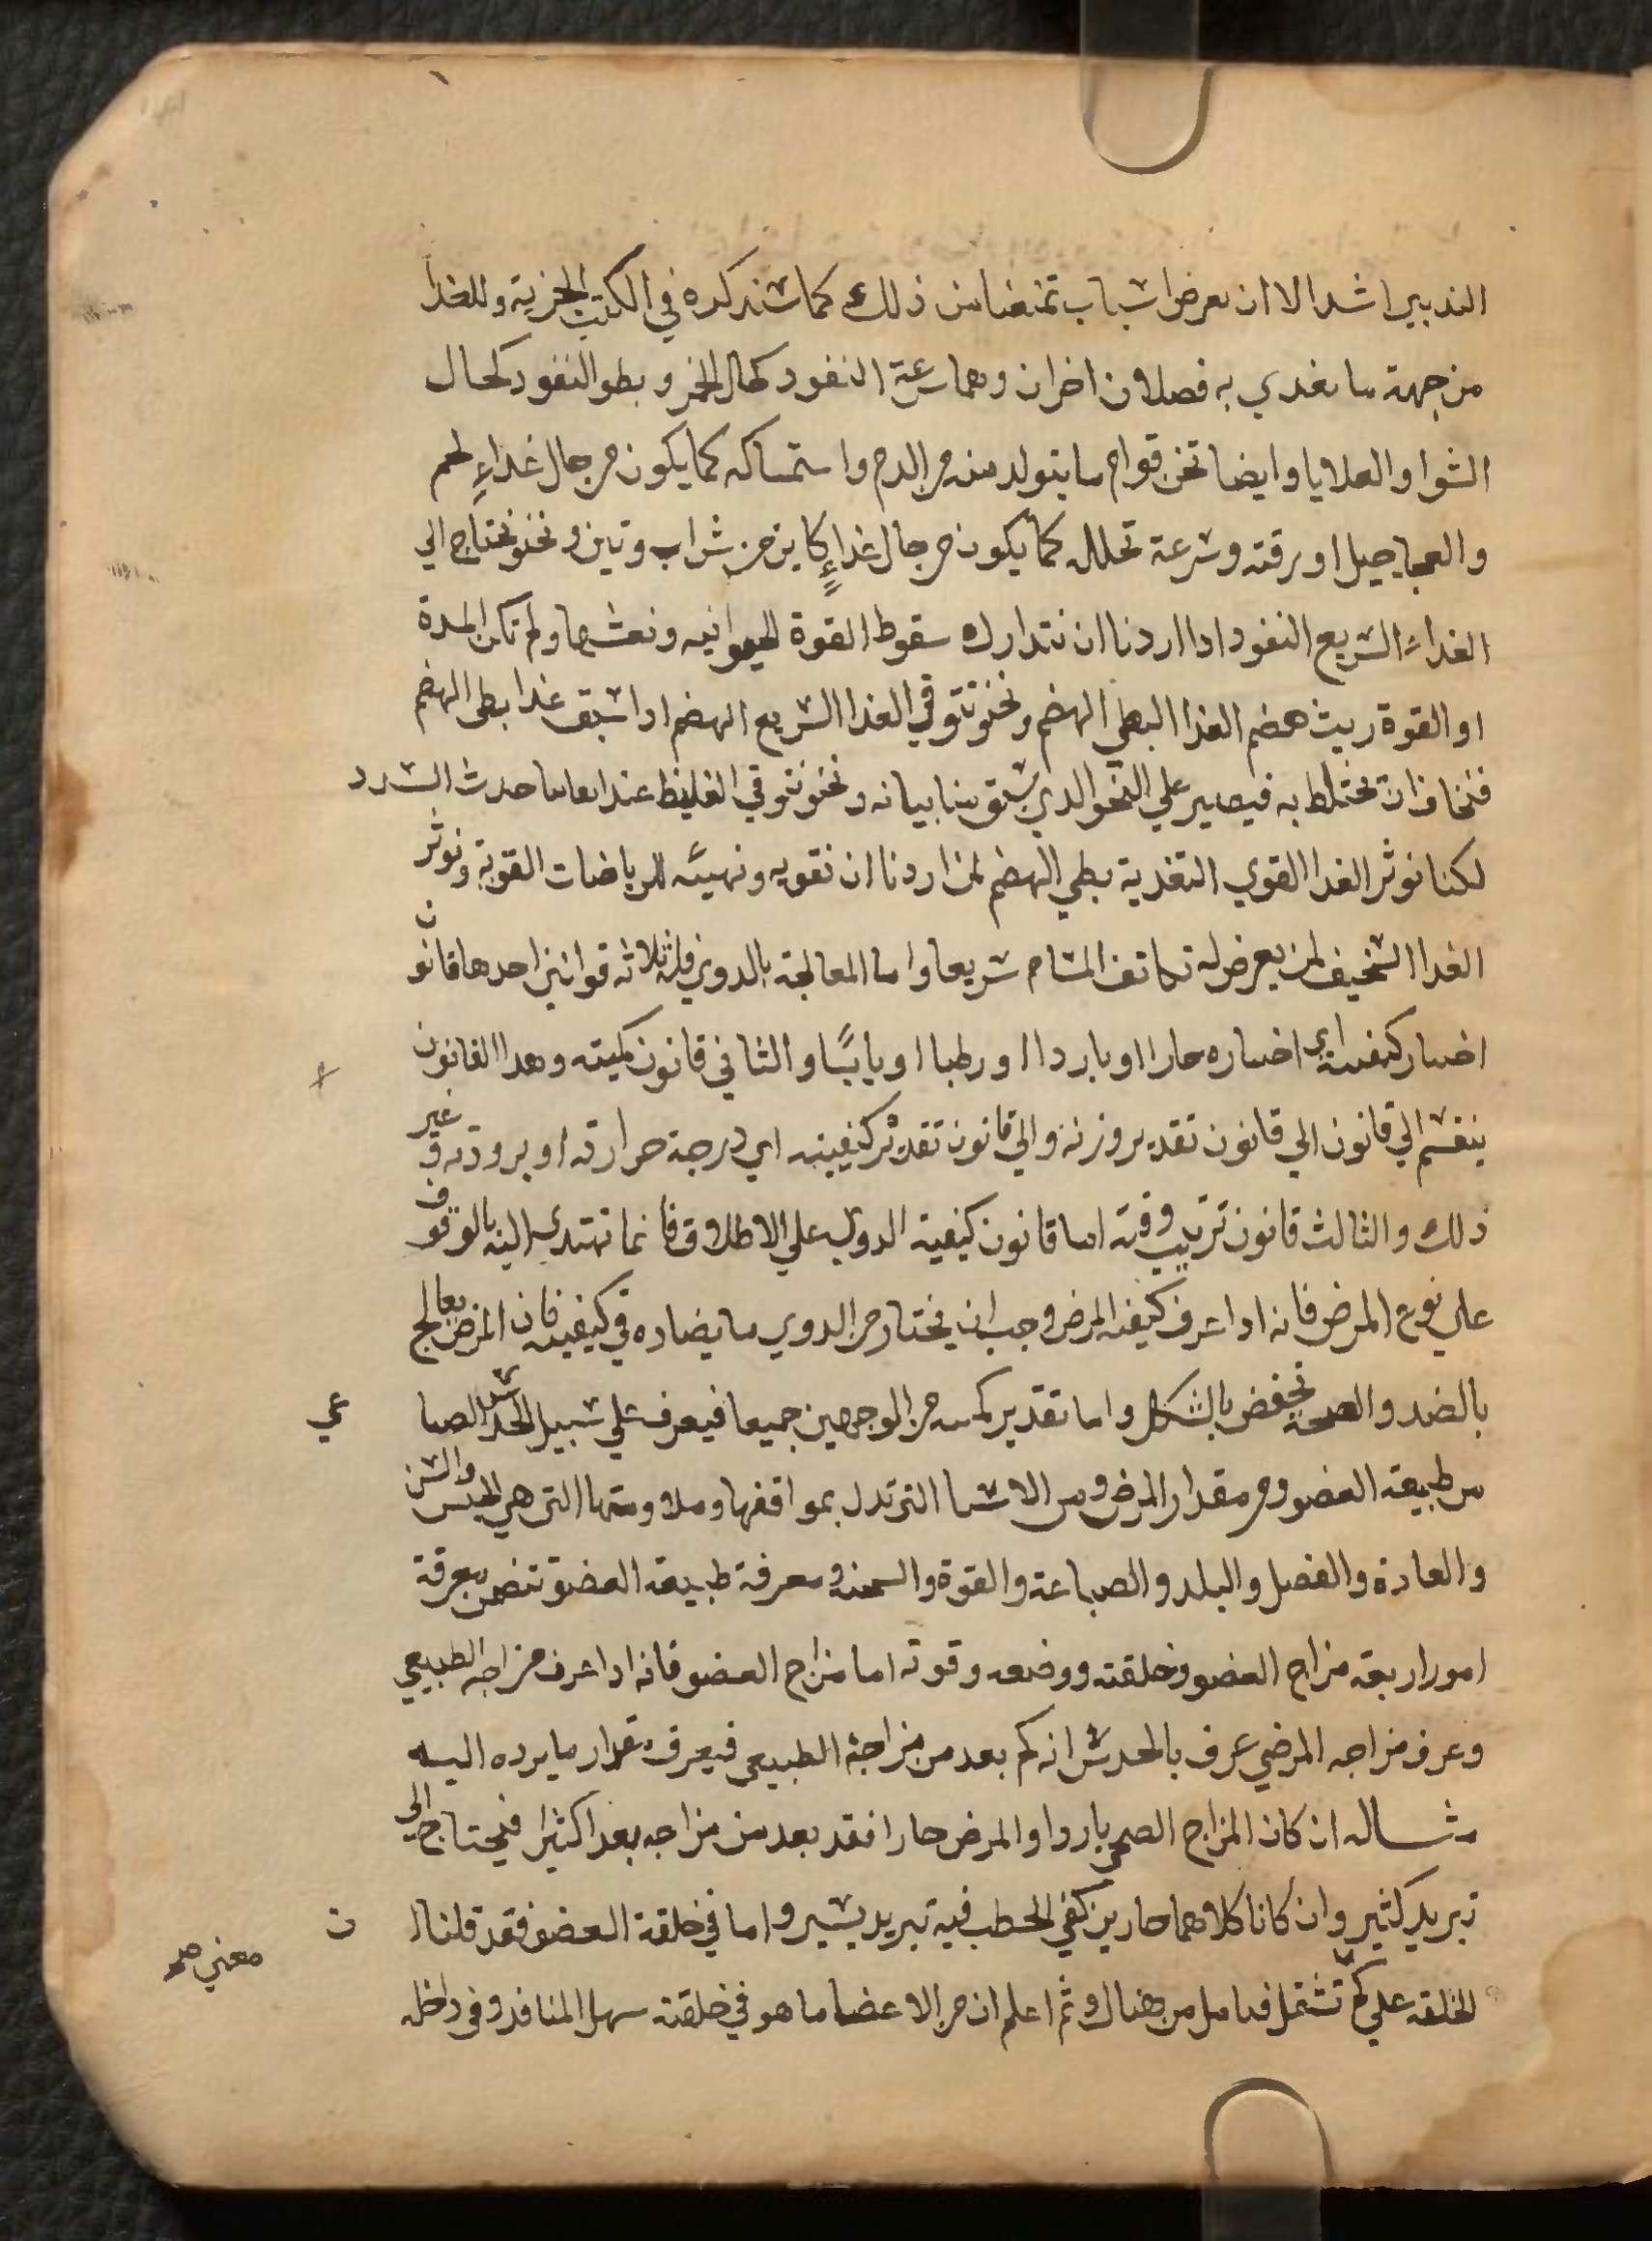 التدبير اشد الا ان يعرض اسباب تمنعنا من ذلك كما سنذكره في الكتب الجزية وللغدا
من جهة ما يغدي به فصلان اخران وهما سرعة النفود كحال الخمر و بطو النفود كحال
الشوا والعلايا وايضا تخن قوام ما يتولد منه من الدم واستمساكه كما يكون من حال غداءٍ لحم
والعجاجيل او رقته وسرعة تحلله كما يكون من حال غداءٍ كاين من شراب وتين ونحن نحتاج الي
الغداء السريع النفود ادا اردنا ان نتدارك سقوط القوة الحيوانيه ونعشها ولم تكن المدة
او القوة ريث هضم الغدا البطي الهضم ونحن نتوقي الغدا السريع الهضم ادا سبق غدا بطي الهضم
فنخاف ان تختلط به فيصير علي النحو الدي سبق منا بيانه ونحن نتوقي الغليظ عند ايماننا حدث السدد
لكنا نوثر الغدا القوي التغدية بطي الهضم لمن اردنا ان نقويه ونهيئه للرياضات القوية ونوثر
الغدا السخيف لمن يعرض له تكاتف المسام سريعا واما المعالجة بالدوي فله ثلاثه قوانين احدها قانون
اختيار كيفيته اي اختياره حارا او باردا او رطبا او يابسًا والثاني قانون كميته وهدا القانون
ينقسم الي قانون الي قانون تقدير وزنه والي قانون تقدير كيفيته اي درجة حرارته او برودته و غير
دلك والثالث قانون ترتيب وقته اما قانون كيفية الدوي علي الاطلاق فانما تهتدي اليه بالوقوف
علي نوع المرض فانه ادا عرف كيفيه المرض وجب ان يختار من الدوي ما يضاده في كيفيته فان المرض يعالج
بالضد والصحة تحفض بالشكل واما تقدير كميته من الوجهين جميعا فيعرف علي سبيل الحدس الصناعي
من طبيعة العضو ومن مقدار المرض ومن الاشيا التي تدل بموافقها وملاومتها التي هي الجنس والسن
والعادة والفصل والبلد والصباعة والقوة والسحنه ومعرفة طبيعة العضو تتضمن معرفة
امور اربعة مزاج العضو وخلقته ووضعه وقوته اما مزاج العضو فانه ادا عرف مزاجه الطبيعي
وعرف مزاجه المرضي عرف بالحدس انه كم بعد من مزاجه الطبيعي فيعرف مقدار ما يرده اليه
مثاله ان كان المزاج الصحي باردا والمرض حارا فقد بعد من مزاجه بعدا كثيرا فيحتاج الي
تبريد كثير وان كانا كلاهما حارين كفي الخطب فيه تبريد يسير واما في خلقة العضو فقد قلنا ان
معني صح
الخلقه علي كم تشتمل فتامل من هناك ثم اعلم ان من الاعضا ما هو في خلقته سهل المنافد وفي داخله